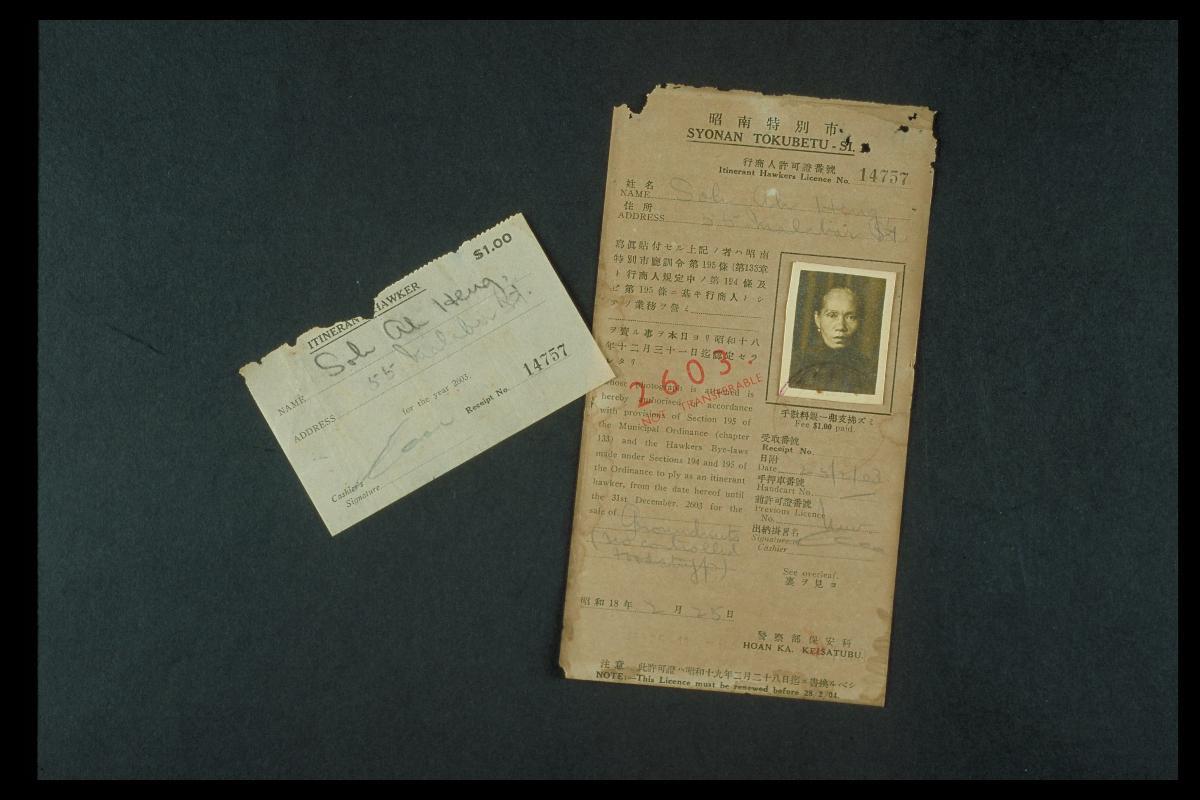 $1.00
ITINERANT HAWKER
NAME Soh Ah Heng,
ADDRESS 55 Malabar St.
for the year 2603.
Receipt No. 14757
Cashier's
Signature
昭南特別市
SYONAN TOKUBETU-SI.
行商人許可證番號
Itinerant Hawkers Licence No. 14757
姓名
NAME Soh Ah Heng
住所
ADDRESS 55 Malabar St
寫眞貼付セル上記ノ者ハ昭南
特別市廳訓令第195條(第133章
ト行商人規定中ノ第194條及
ビ第195條ニ基キ行商人トシ
テノ業務ヲ營ミ
ヲ賣ル事ヲ本日ヨリ昭和十八
年十二月三十一日迄認定セラ
レタリ
2603.
NOT TRANSFERABLE
whose photograph is attached is
hereby authorised in accordance
with provisions of Section 195 of
the Municipal Ordinance (chapter
133) and the Hawkers Bye-laws
made under Sections 194 and 195 of
the Ordinance to ply as an itinerant
hawker, from the date hereof until
the 31st December, 2603 for the
sale of Groundnuts
(uncontrolled
foodstuffs)
手數料銀一弗支拂ズミ
Fee $1.00 paid.
受取番號
Receipt No.
日附
Date 25/2/03
手押車番號
Handcart No.
前許可證番號
Previous Licence
No. New
出納掛署名
Signature of
Cashier
See overleaf.
裏ヲ見ヨ
昭和18年 2 月 25 日
警察部保安科
HOAN KA, KEISATUBU.
注意 此許可證ハ昭和十九年二月二十八日迄ニ書換ルベシ
NOTE:—This Licence must be renewed before 28/2/04.